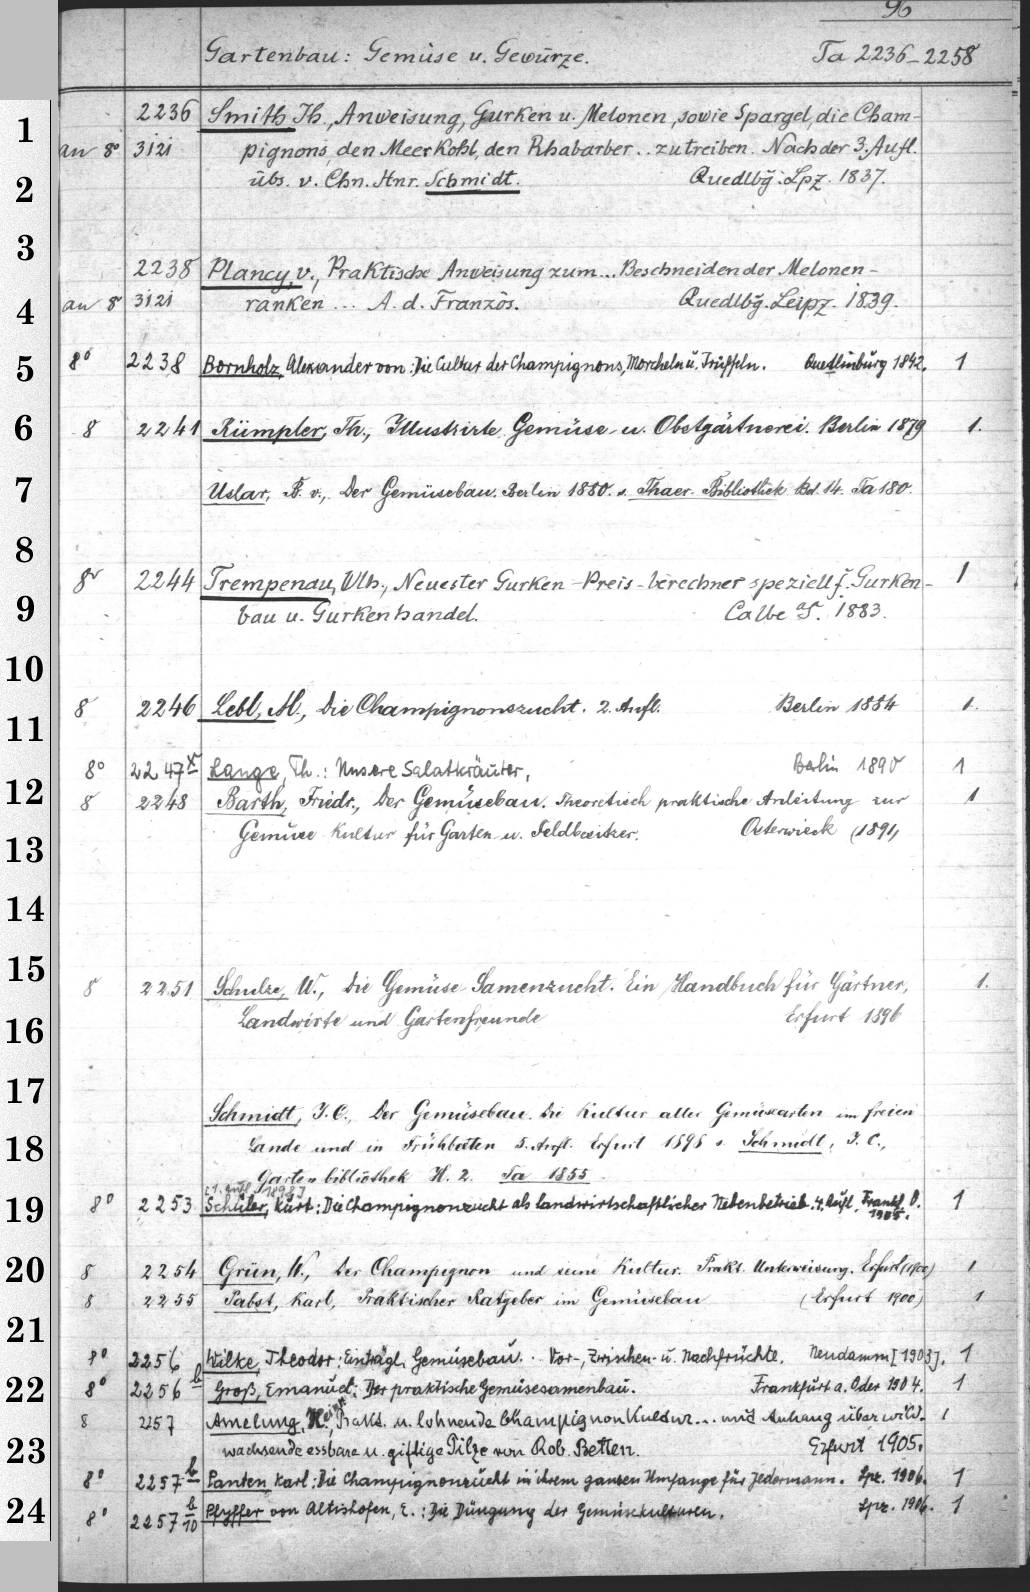 96
Gartenbau: Gemüse u. Gewürze. Ta 2236-2258
1
2236 Smith Th., Anweisung, Gurken u. Melonen, sowie Spargel, die Cham-
an 8° 3121 pignons, den Meerkohl, den Rhabarber .. zu treiben. Nach der 3. Aufl.
2
übs. v. Chn. Hnr. Schmidt. Quedlbg.: Lpz. 1837.
3
2238 Plancy, v., Praktische Anweisung zum ... Beschneiden der Melonen-
4
an 8 3121 ranken ... A. d. Französ. Quedlbg. Leipz. 1839.
5
8° 2238 Bornholz, Alexander von: Die Cultur der Champignons, Morcheln u. Trüffeln. Quedlinburg 1842. 1
6
8 2241 Rümpler, Th., Illustrirte Gemüse- u. Obstgärtnerei. Berlin 1879 1.
7
Uslar, B. v., Der Gemüsebau. Berlin 1880. s. Thaer-Bibliothek Bd. 14. Ta 180.
8
8° 2244 Trempenau, Wlh., Neuester Gurken-Preis-berechner speziell f. Gurken- 1
9
bau u. Gurkenhandel. Calbe a/S. 1883.
10
8 2246 Lebl, M., Die Champignonszucht. 2. Aufl. Berlin 1884 1.
11
8° 2247x Lange, Th.: Unsere Salatkräuter, Berlin 1890 1
12
8 2248 Barth, Friedr., Der Gemüsebau. Theoretisch praktische Anleitung zur 1
Gemüse Kultur für Garten- u. Feldbesitzer. Osterwieck (1891)
13
14
15
8 2251 Schulze, W., Die Gemüse Samenzucht. Ein Handbuch für Gärtner, 1.
16
Landwirte und Gartenfreunde Erfurt 1896
17
Schmidt, J. C., Der Gemüsebau. Die Kultur aller Gemüsearten im freien
18
Lande und in Frühbeeten 5. Aufl. Erfurt 1898 s. Schmidt, J. C.,
Gartenbibliothek H. 2. Ta 1855.
19
8° 2253 Schüler, Kurt: Die Champignonzucht als landwirtschaftlicher Nebenbetrieb. 4. Aufl. Frankf. O. 1905. 1
20
8 2254 Grün, W., Der Champignon und seine Kultur. Prakt. Unterweisung. Erfurt (1900) 1
8 2255 Pabst, Karl, Praktischer Ratgeber im Gemüsebau (Erfurt 1900) 1
21
8° 2256 Wilke, Theodor: Einträgl. Gemüsebau. .. Vor-, Zwischen- u. Nachfrüchte. Neudamm [1903]. 1
22
8° 2256 b Groß, Emanuel: Der praktische Gemüsesamenbau. Frankfurt a. Oder 1904. 1
8 2257 Amelung, H., Prakt. u. lohnende Champignon Kultur ... mit Anhang über wild- 1
23
wachsende essbare u. giftige Pilze von Rob. Betten. Erfurt 1905.
8° 2257 b Panten Karl: Die Champignonzucht in ihrem ganzen Umfange für Jedermann. Lpz. 1906. 1
24
8° 2257 b/10 Pfyffer von Altishofen, E.: Die Düngung der Gemüsekulturen. Lpz. 1906. 1